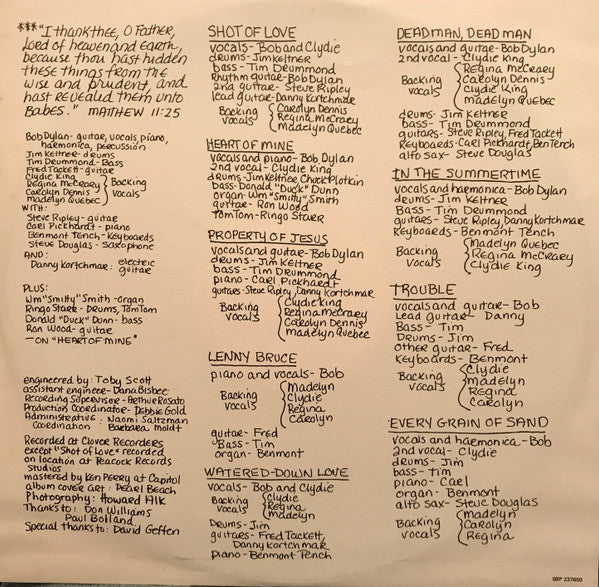 ***"I thank thee, O Father,
Lord of heaven and earth,
because thou hast hidden
these things from the
wise and prudent, and
hast revealed them unto
Babes." MATTHEW 11:25
Bob Dylan - guitar, vocals, piano,
harmonica, percussion
Jim Keltner - drums
Tim Drummond - Bass
Fred Tackett - guitar
Clydie King
Regina McCrary
Carolyn Dennis
madelyn Quebec
Backing
vocals
WITH:
Steve Ripley - guitar
Carl Pickhardt - piano
Benmont Tench - Keyboards
Steve Douglas - saxophone
AND:
Danny Kortchmar: electric
guitar
PLUS:
Wm "Smitty" Smith - organ
Ringo Starr - Drums, TomTom
Donald "Duck" Dunn - bass
Ron Wood - guitar
— ON "HEART OF MINE"
engineered by: Toby Scott
assistant engineer - Dana Bisbee
Recording Supervisor - Arthur Rosato
Production Coordinator - Debbie Gold
Administrative: Naomi Saltzman
Coordination Barbara Moldt
Recorded at Clover Recorders
except "Shot of Love" recorded
on location at Peacock Records
Studios
mastered by Ken Perry at Capitol
album cover art: Pearl Beach
Photography: Howard Alk
Thanks to: Don Williams
Paul Bolland
Special thanks to: David Geffen
SHOT OF LOVE
vocals - Bob and Clydie
drums - Jim Keltner
bass - Tim Drummond
Rhythm guitar - Bob Dylan
2nd guitar - Steve Ripley
lead guitar - Danny Kortchmar
Backing
vocals
Carolyn Dennis
Regina McCrary
madelyn Quebec
HEART OF MINE
vocals and piano - Bob Dylan
2nd vocal - Clydie King
drums - Jim Keltner, Chuck Plotkin
bass - Donald "Duck" Dunn
organ - Wm "Smitty" Smith
guitar - Ron Wood
TomTom - Ringo Starr
PROPERTY OF JESUS
vocals and guitar - Bob Dylan
drums - Jim Keltner
bass - Tim Drummond
piano - Carl Pickhardt
guitars - Steve Ripley, Danny Kortchmar
Backing
vocals
Clydie King
Regina McCrary
Carolyn Dennis
madelyn Quebec
LENNY BRUCE
piano and vocals - Bob
Backing
vocals
madelyn
Clydie
Regina
Carolyn
guitar - Fred
Bass - Tim
organ - Benmont
WATERED-DOWN LOVE
vocals - Bob and Clydie
Backing
vocals
Clydie
Regina
madelyn
Drums - Jim
guitars - Fred Tackett,
Danny Kortchmar
piano - Benmont Tench
DEAD MAN, DEAD MAN
vocals and guitar - Bob Dylan
2nd vocal - Clydie King
Backing
vocals
Regina McCrary
Carolyn Dennis
Clydie King
madelyn Quebec
drums - Jim Keltner
bass - Tim Drummond
guitars - Steve Ripley, Fred Tackett
Keyboards - Carl Pickhardt, Ben Tench
alto sax - Steve Douglas
IN THE SUMMERTIME
vocals and harmonica - Bob Dylan
drums - Jim Keltner
Bass - Tim Drummond
guitars - Steve Ripley, Danny Kortchmar
Keyboards - Benmont Tench
Backing
vocals
Madelyn Quebec
Regina McCrary
Clydie King
TROUBLE
vocals and guitar - Bob
Lead guitar - Danny
Bass - Tim
Drums - Jim
other guitar - Fred
Keyboards - Benmont
Backing
vocals
Clydie
madelyn
Regina
Carolyn
EVERY GRAIN OF SAND
vocals and harmonica - Bob
2nd vocal - Clydie
drums - Jim
bass - Tim
piano - Carl
organ - Benmont
alto sax - Steve Douglas
Backing
vocals
madelyn
Carolyn
Regina
SBP 237650